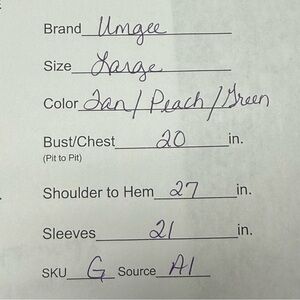 Brand Umgee
Size Large
Color Tan/Peach/Green
Bust/Chest 20 in.
(Pit to Pit)
Shoulder to Hem 27 in.
Sleeves 21 in.
SKU G Source A1